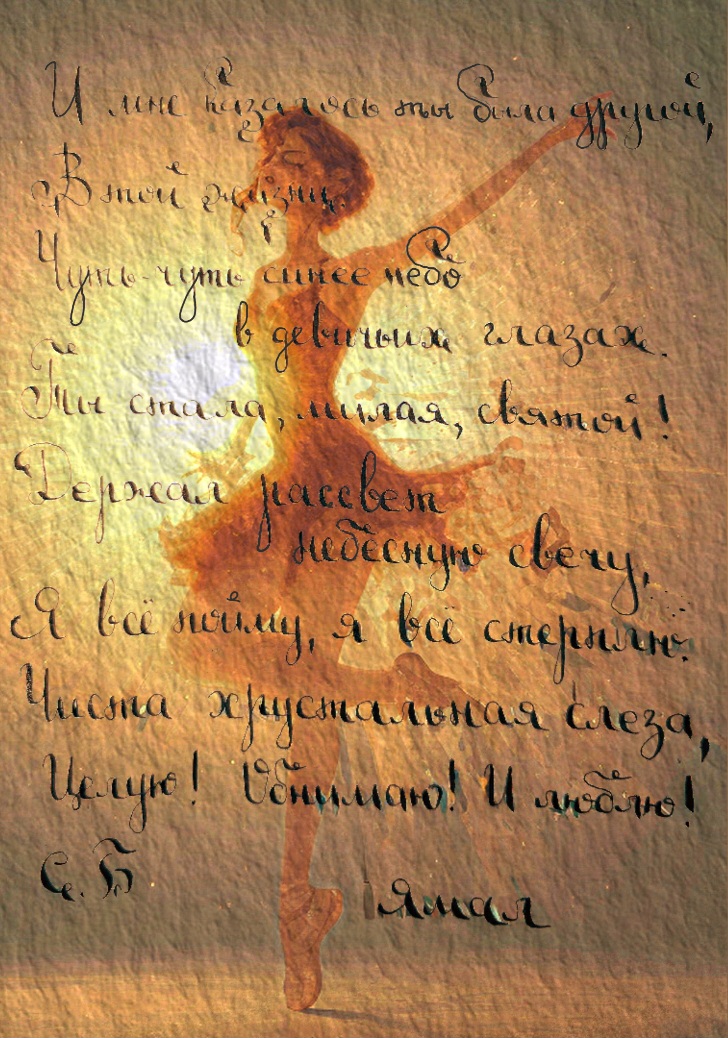 И мне казалось ты была другой,
В той жизни.
Чуть-чуть синее небо
в девичьих глазах.
Ты стала, милая, святой!
Держал рассвет
небесную свечу,
Я всё пойму, я всё стерплю.
Чиста хрустальная слеза,
Целую! Обнимаю! И люблю!
С. Б
Ямал